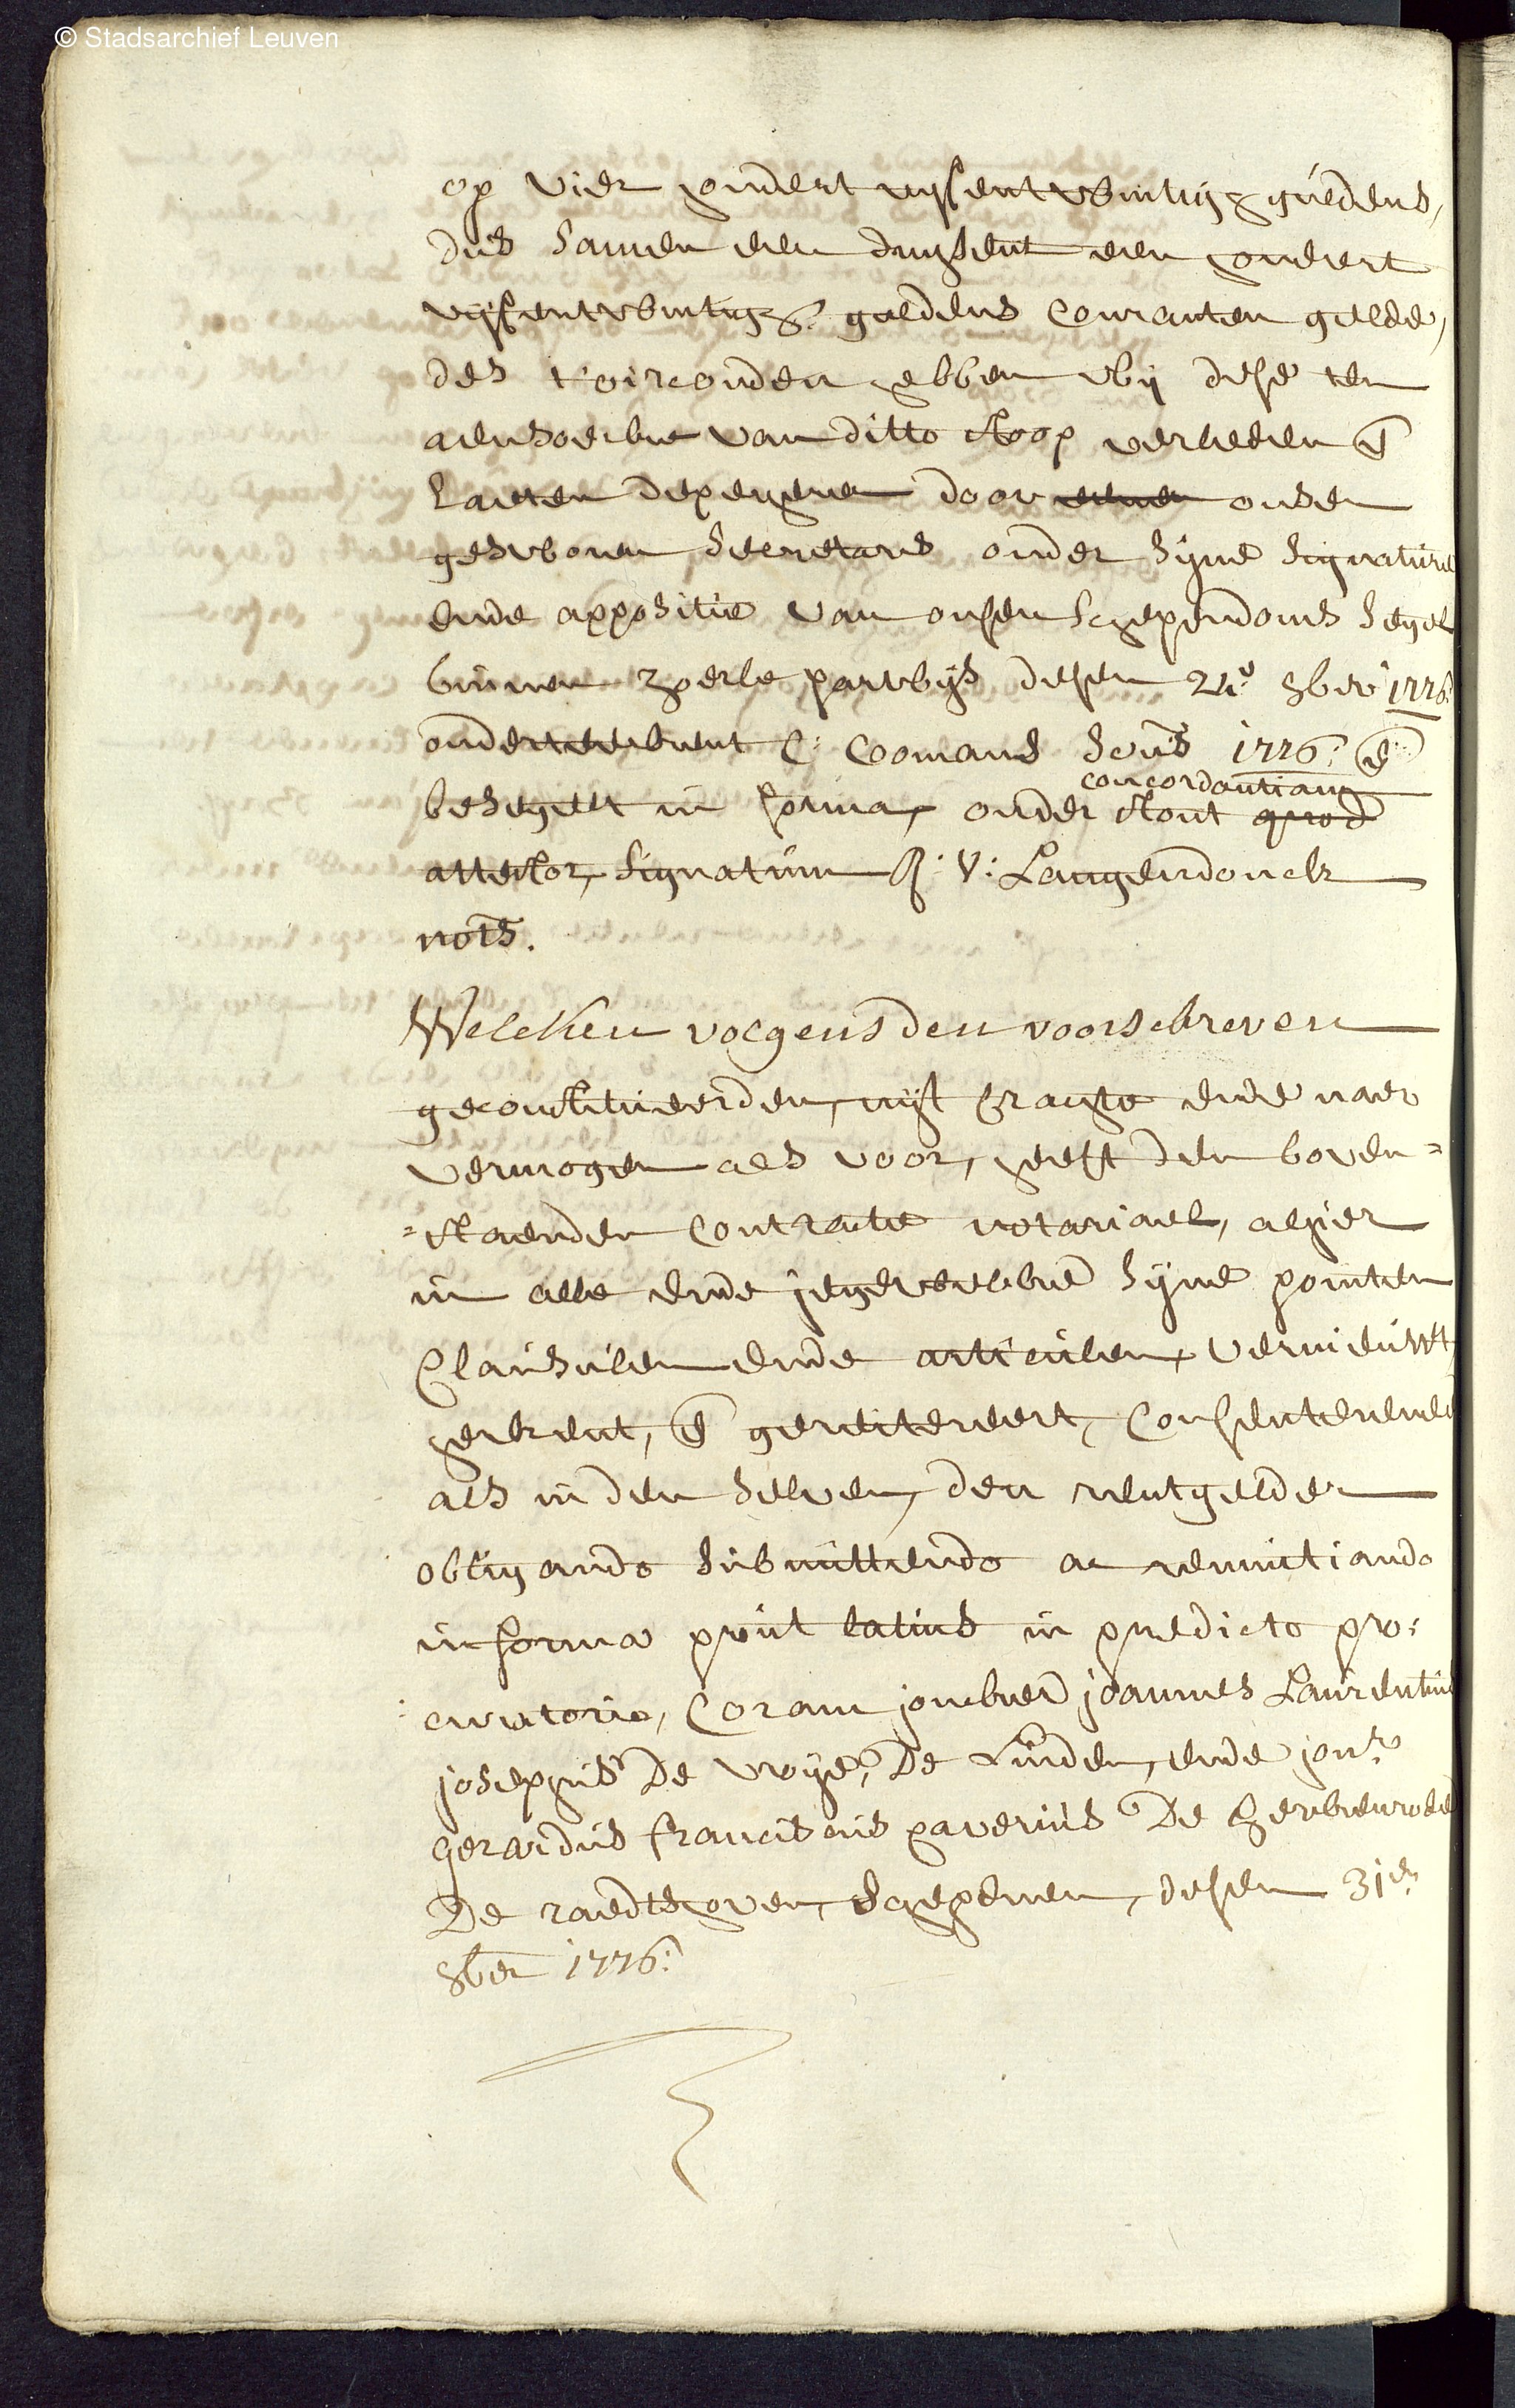 © Stadsarchief Leuven
op vier hondert vijfentwintigh guldens,
dus samen een duijsent een hondert
vijfentwintigh guldens Couranten gelde,
des t'oirconden hebben wij dese ten
aensoecke van ditto stoop verleden en̄
laeten depecheren door eenen onsen
gesworen secretaris onder sijne signature
ende appositie van onsen schependoms segel
binnen Zoerle parwijs desen 24e 8ber 1776
onderteekent C: Coomans secris 1776: en̄
concordantiam
besegelt in forma, onder stont quod
attestor, signatum R: V: Langendonck
nots.
Welcken volgens den voorschreven
geconstitueerden, uijt crachte ende naer
vermogen als voor, heeft den boven=
=staenden Contracte notariael, alhier
in alle ende jegewelcke sijne pointen
Clausulen ende articulen, vernieuwt,
herkent, en̄ gereitereert, Consenterende
als in den selven, den rentgelder
obligando submittendo ac renuntiando
in forma prout latius in predicto pro:
:curatorio, Coram joncker joannes Laurentius
josephus De vroije, De Linden, ende jonr
gerardus franciscus xaverius De herckenrode
De raedtshoven, schepenen, desen 31en
8ber 1776: